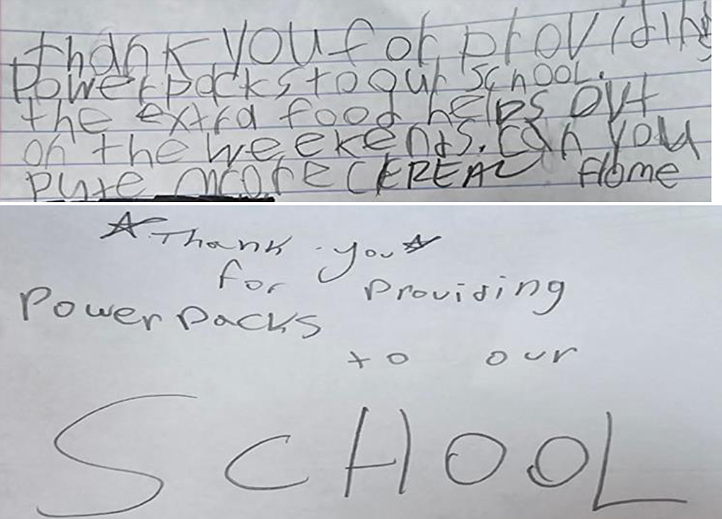 thank you for providing
Powerpacks to our school.
the extra food helps out
on the weekends. can you
pute more CEREAL flome
☆Thank you☆
for Providing
Power Packs
to our
SCHOOL